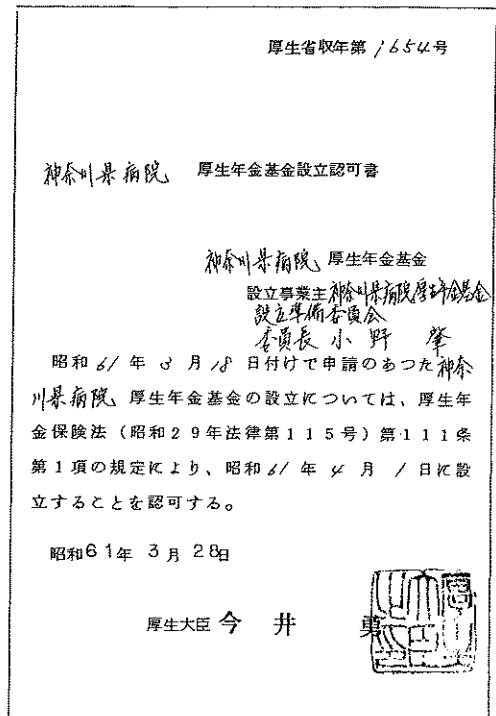 厚生省収年第1654号
神奈川県病院 厚生年金基金設立認可書
神奈川県病院 厚生年金基金
設立事業主 神奈川県病院厚生年金基金
設立準備委員会
委員長 小野 肇
昭和61年3月18日付けで申請のあつた神奈
川県病院 厚生年金基金の設立については、厚生年
金保険法(昭和29年法律第115号)第111条
第1項の規定により、昭和61年4月1日に設
立することを認可する。
昭和61年3月28日
厚生大臣 今井 勇